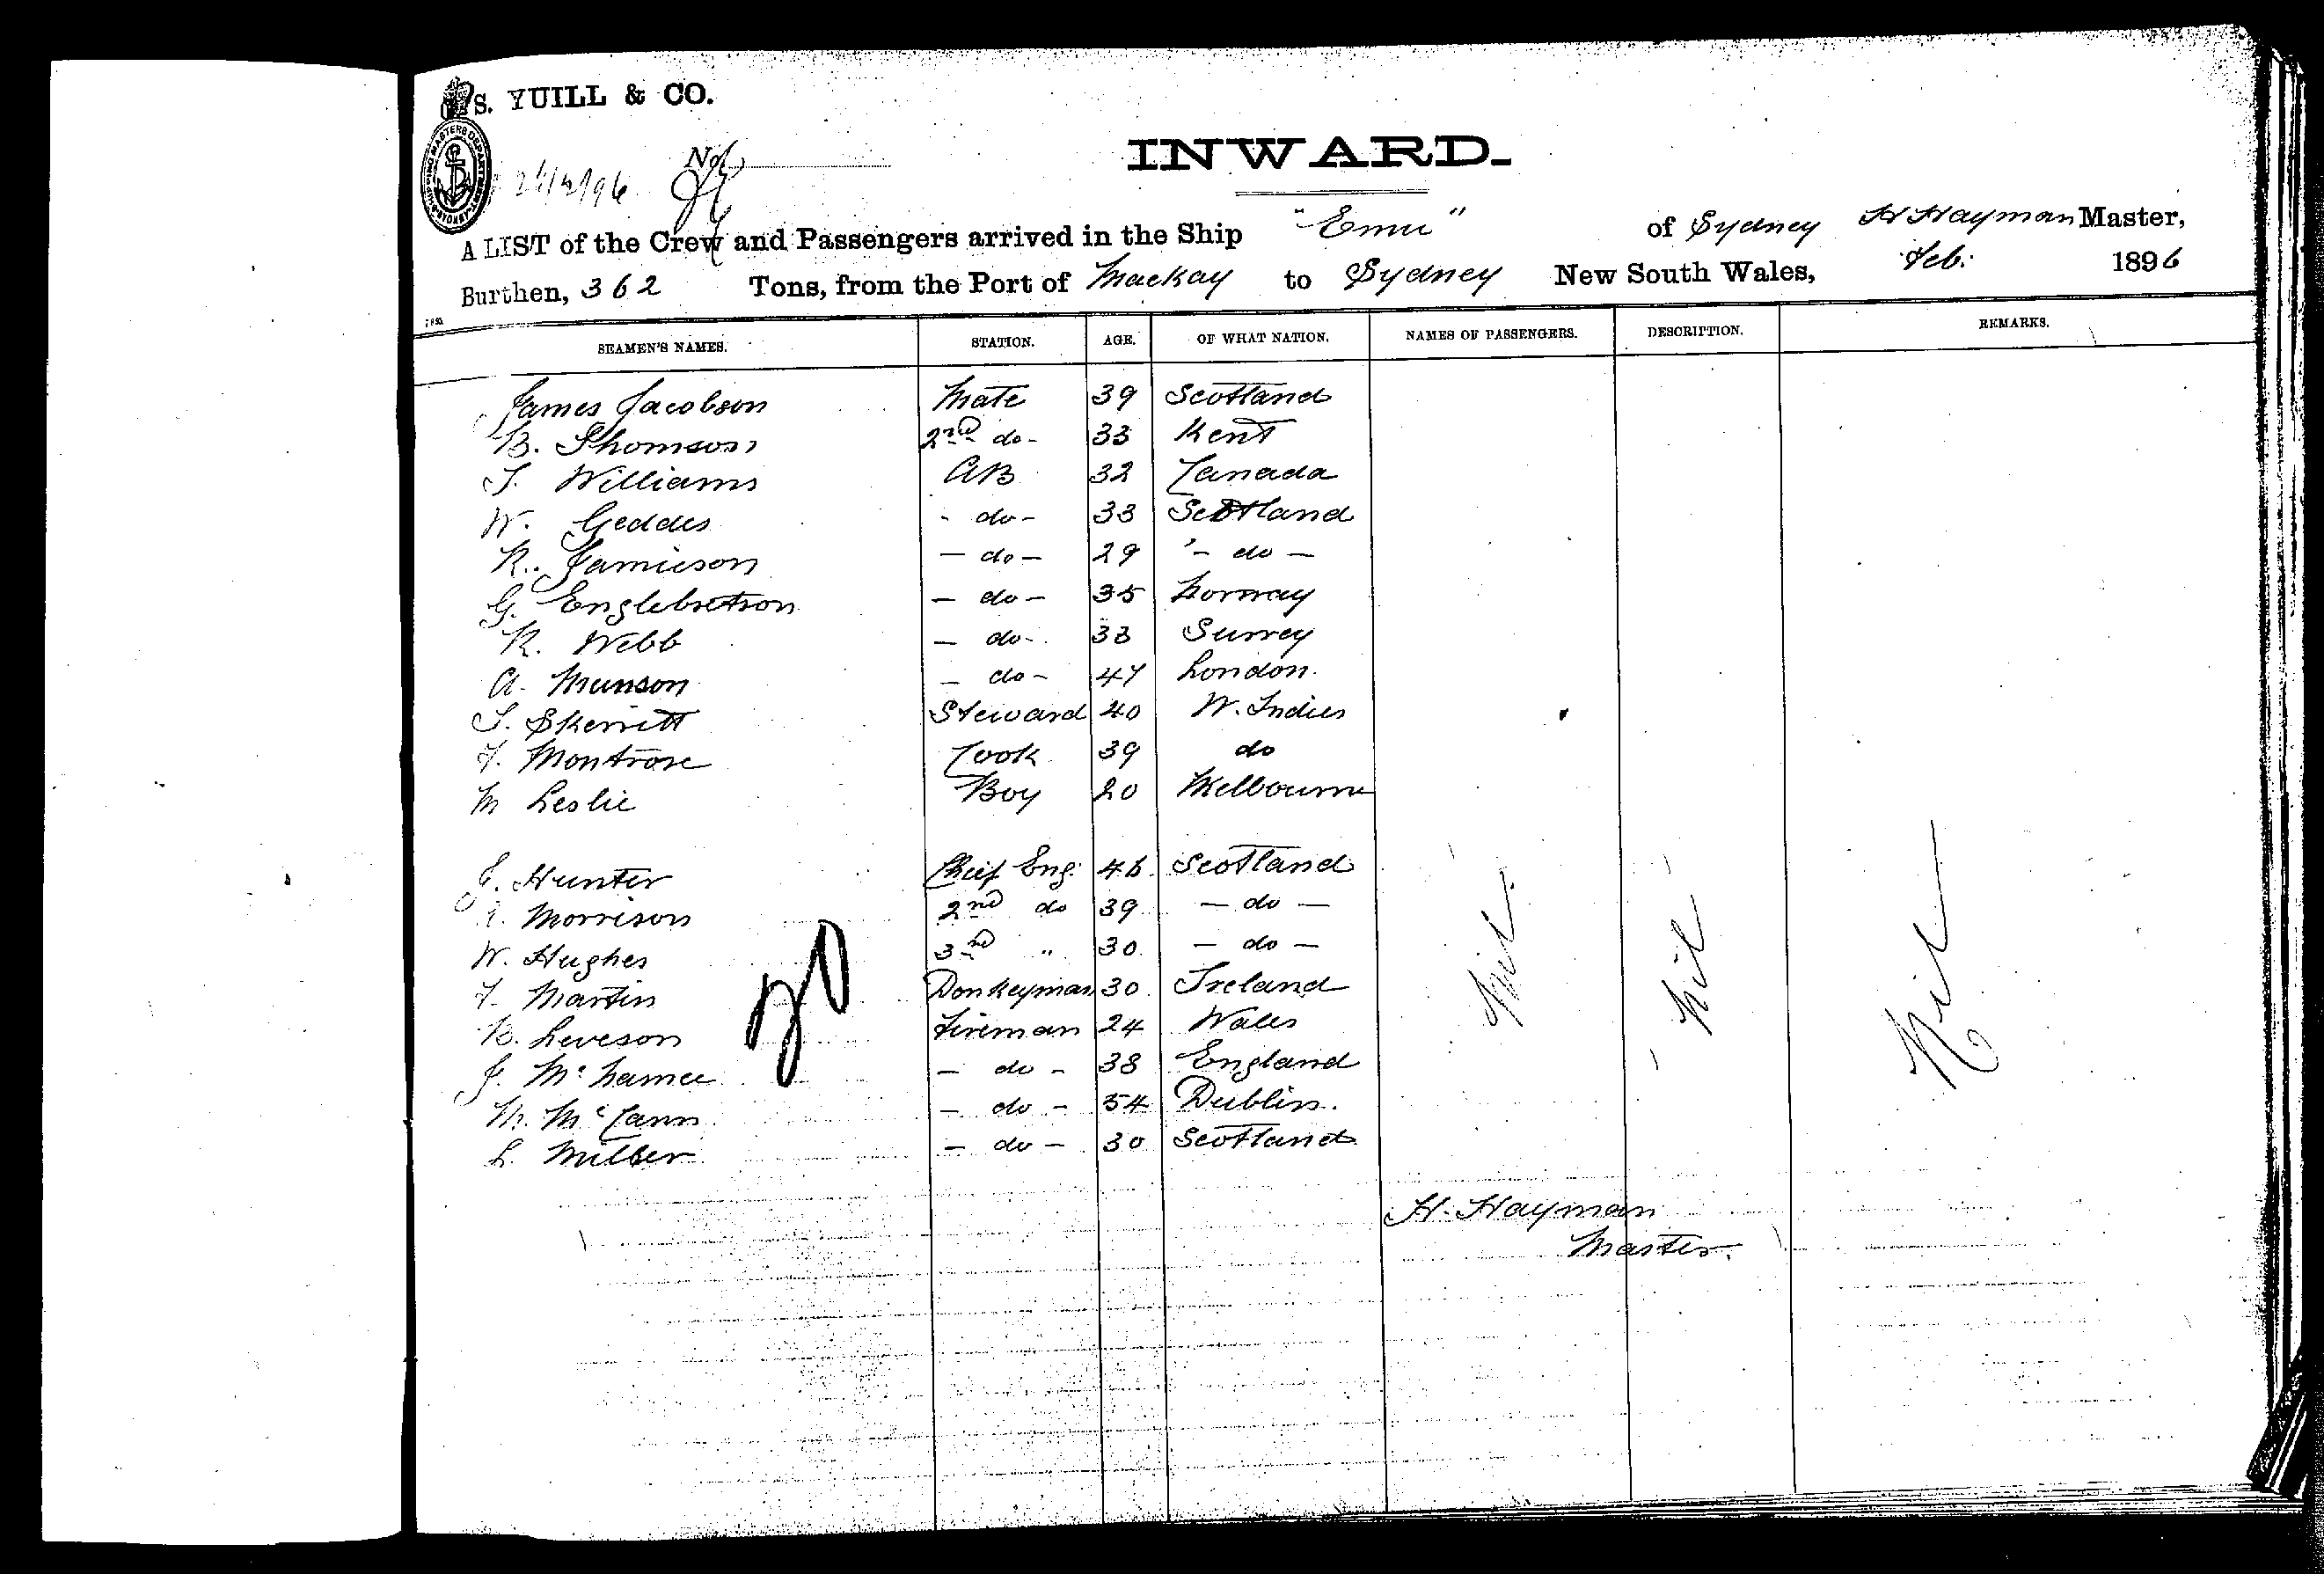 S. YUILL & CO.
INWARD.
No.
A LIST of the Crew and Passengers arrived in the Ship "Emu" of Sydney H Hayman Master,
Burthen, 362 Tons, from the Port of Mackay to Sydney New South Wales, Feb. 1896
SEAMEN'S NAMES. STATION. AGE. OF WHAT NATION. NAMES OF PASSENGERS. DESCRIPTION. REMARKS.
James Jacobson Mate 39 Scotland
B. Thomson 2nd do- 33 Kent
T. Williams AB 32 Canada
W. Geddes - do - 33 Scotland
R. Jamieson - do - 29 - do -
G. Englebretson - do - 35 Norway
R. Webb - do - 33 Surrey
A. Munson - do - 47 London.
T. Skerritt Steward 40 W. Indies
F. Montrose Cook 39 do
M Leslie Boy 20 Melbourne
Hunter Chief Eng. 46 Scotland
Morrison 2nd do 39 - do -
W. Hughes 3rd " 30 - do -
F. Martin Donkeyman 30 Ireland
B. Leveson Fireman 24 Wales
J. McNamee - do - 38 England
M. McCann - do - 54 Dublin.
L. Miller - do - 30 Scotland
Nil. Nil Nil
H. Hayman
Master.